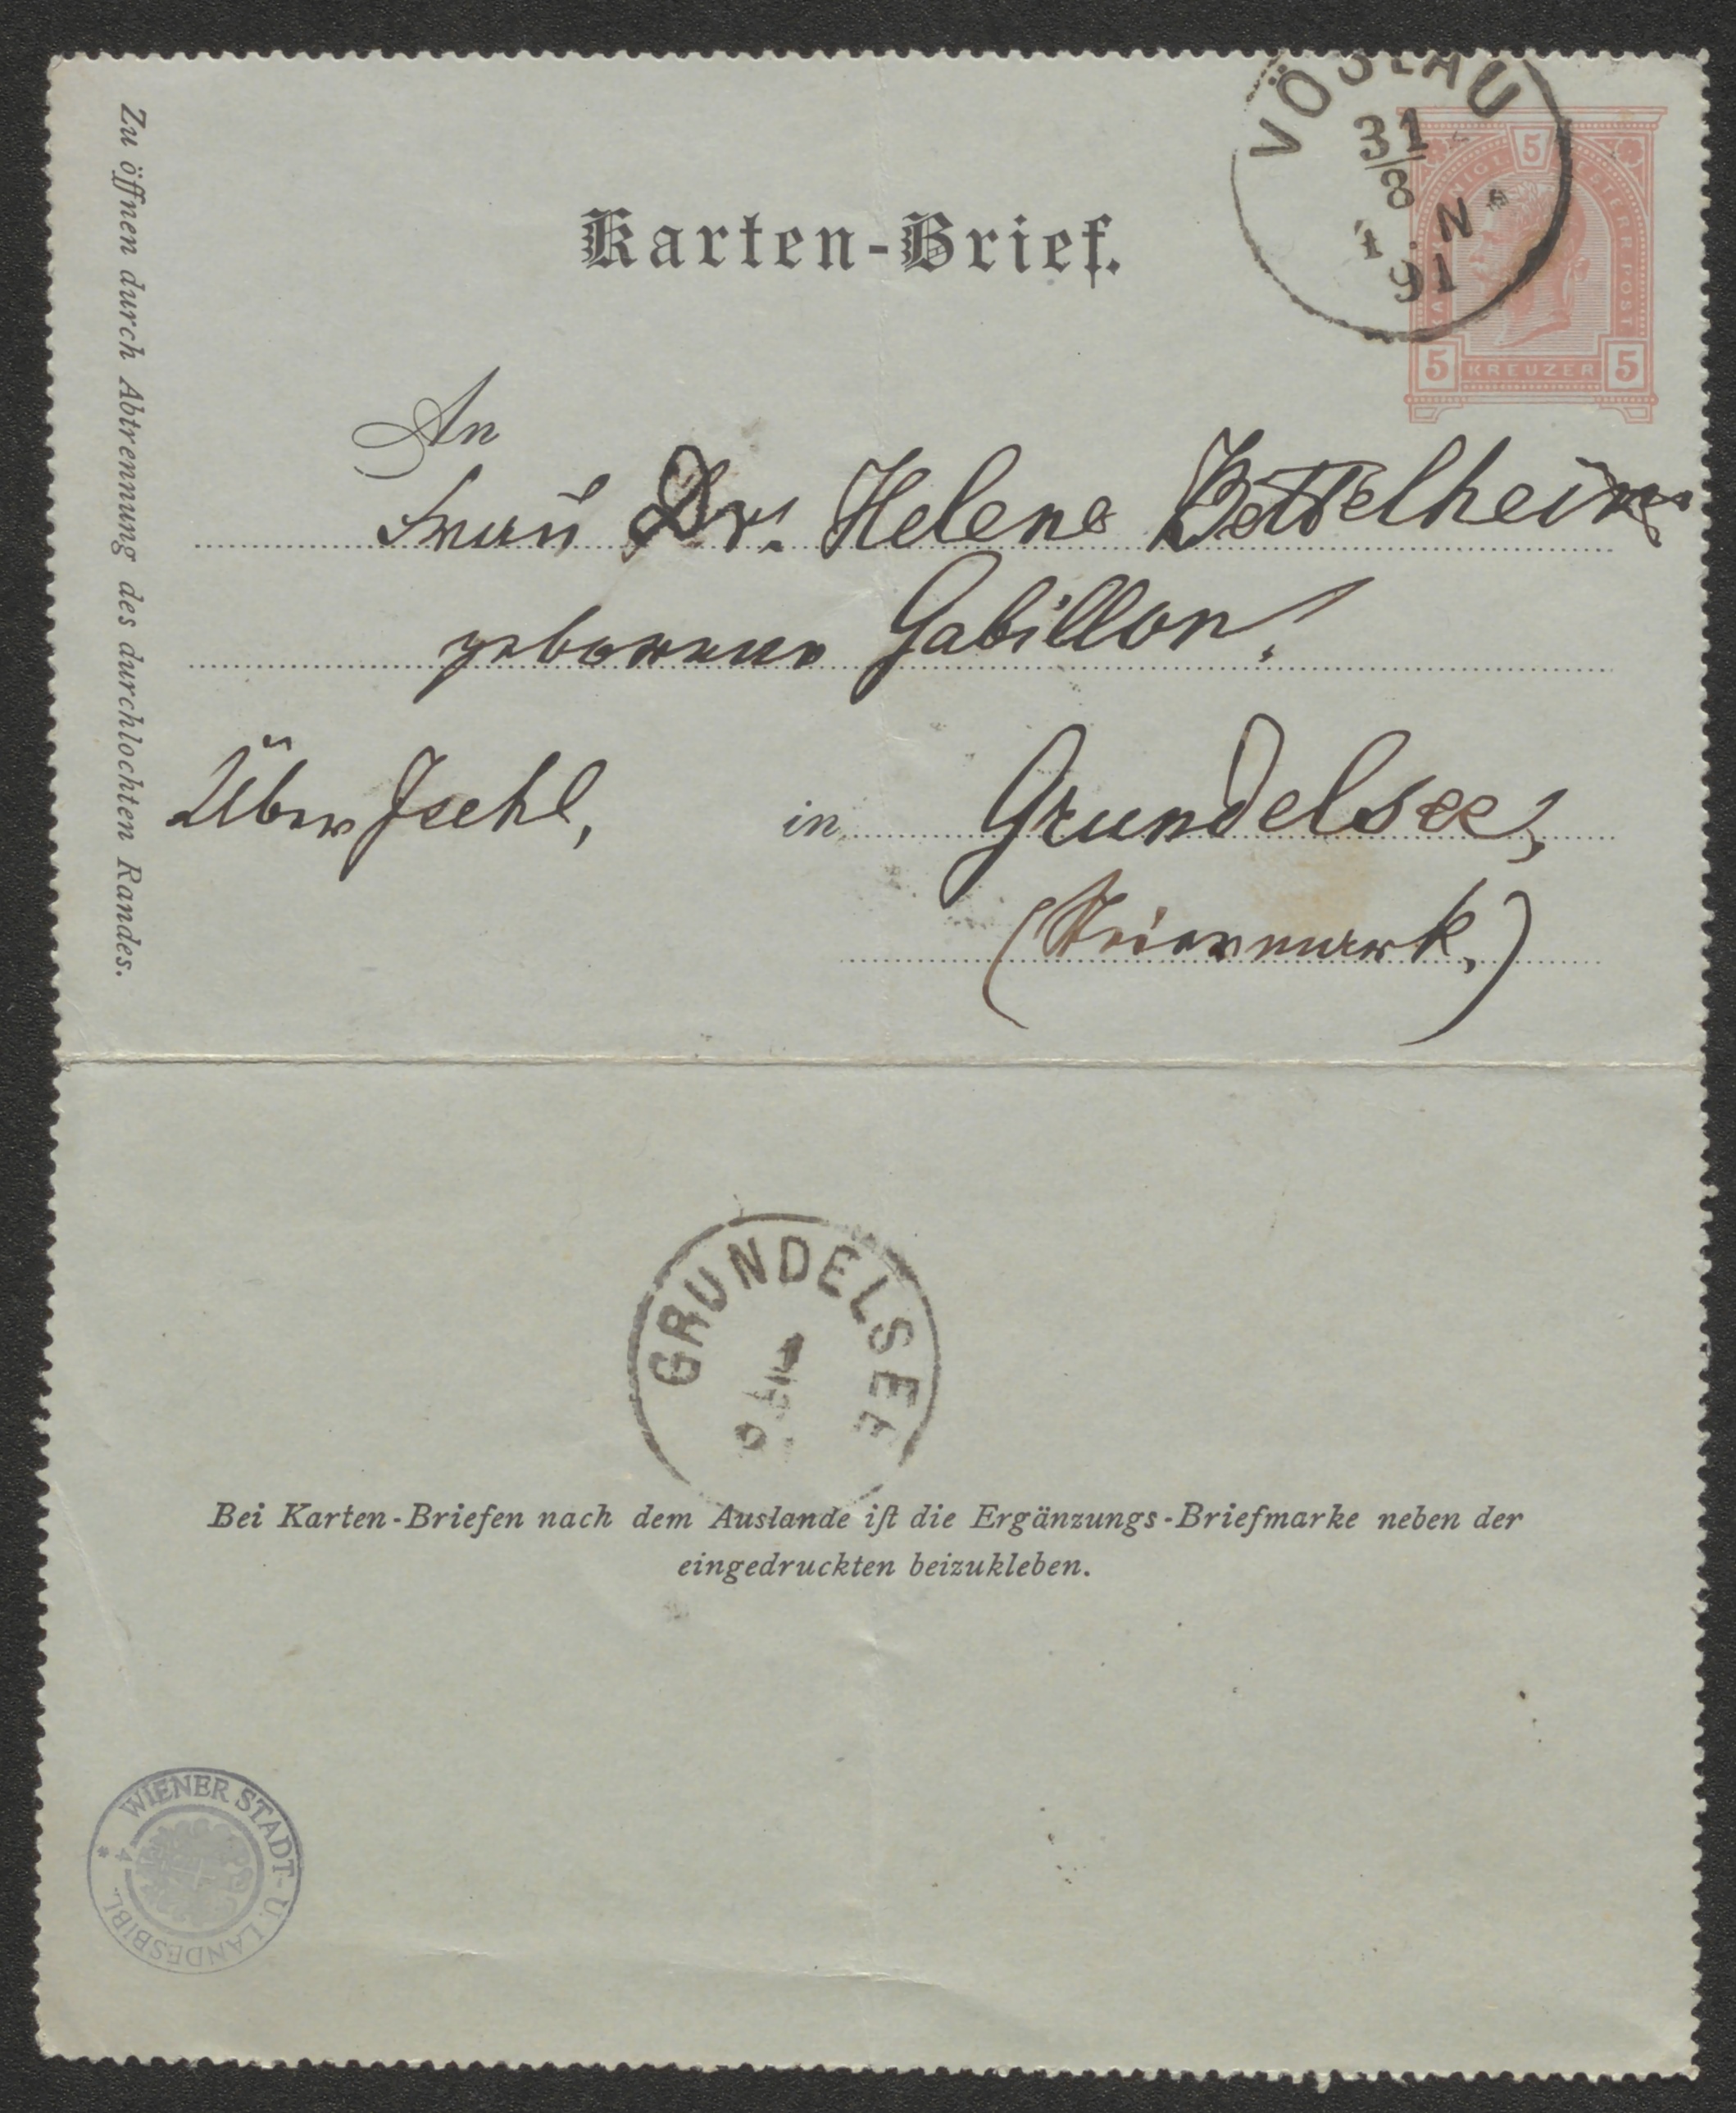 Zu öffnen durch Abtrennung des durchlochten Randes.
VÖSLAU
31
8
N
91
KAIS. KÖNIGL. ÖSTERR. POST
5
5 KREUZER 5
Karten-Brief.
An
Frau Dr. Helene Bettelheim
geborene Gabillon,
Über Ischl, in Grundelsee,
(Steiermark.)
GRUNDELSEE
Bei Karten-Briefen nach dem Auslande iſt die Ergänzungs-Briefmarke neben der
eingedruckten beizukleben.
WIENER STADT- U. LANDESBIBL. * 4